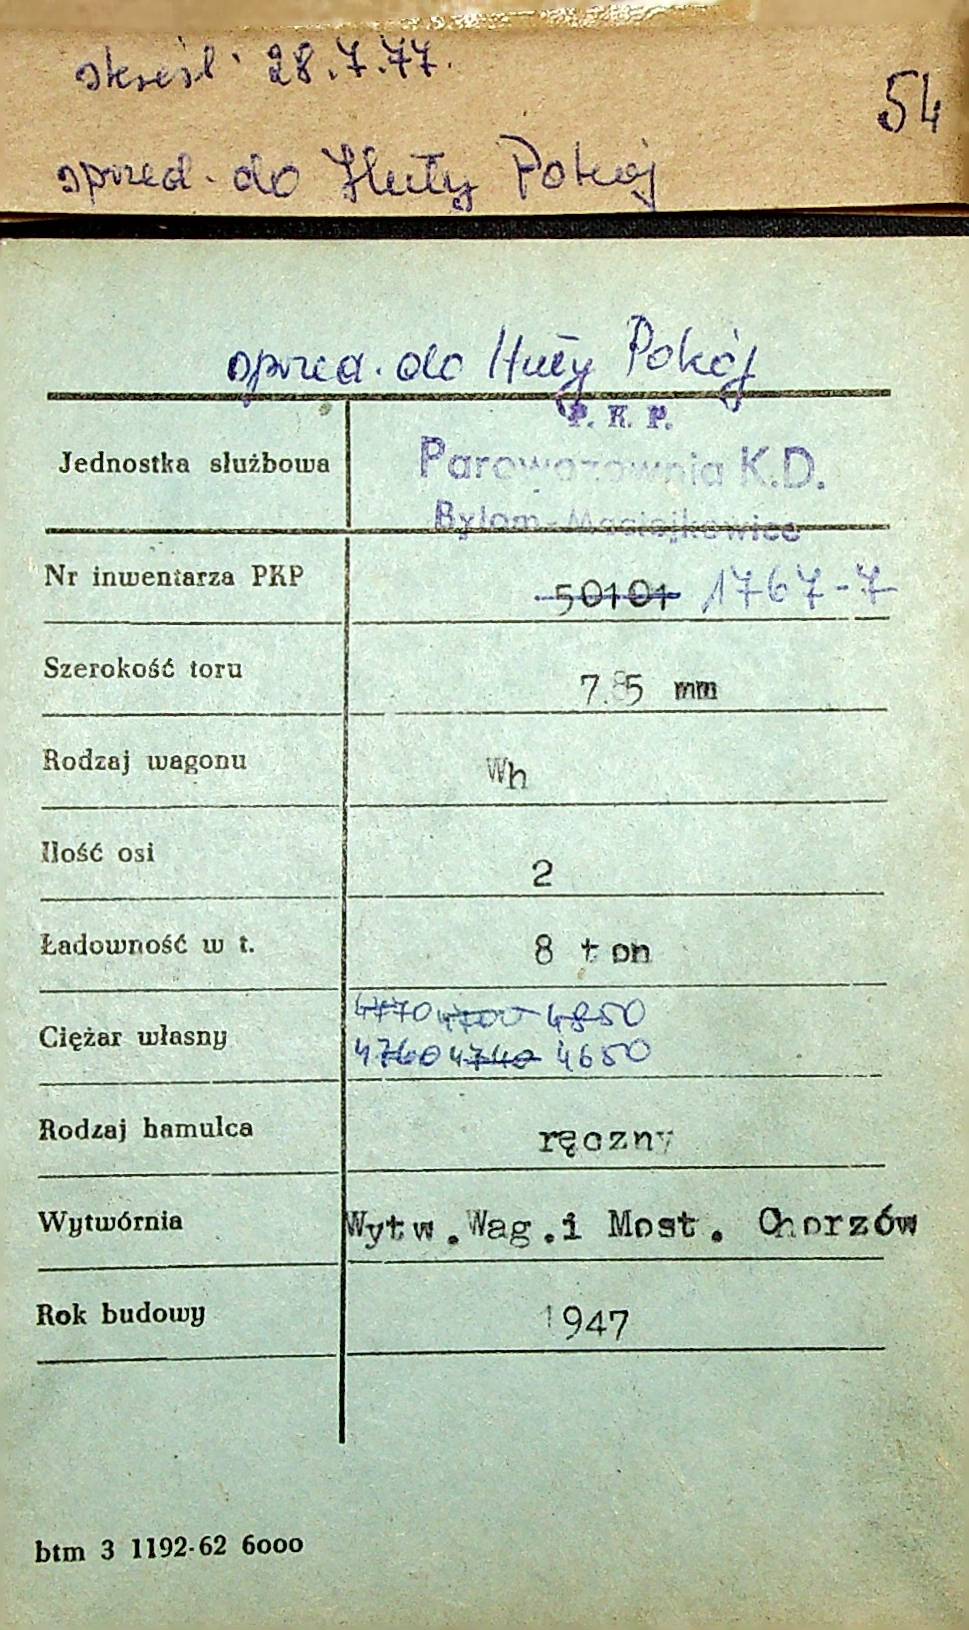 skreśl. 28.7.77.
54
sprzed. do Huty Pokój
sprzed. do Huty Pokój
P. K. P.
Jednostka służbowa Parowozownia K.D.
Bytom-Maciejkowice
Nr inwentarza PKP 50101 1767-7
Szerokość toru 785 mm
Rodzaj wagonu Wh
Ilość osi 2
Ładowność w t. 8 ton
4770 4700 4850
Ciężar własny 4760 4740 4650
Rodzaj hamulca ręczny
Wytwórnia Wytw.Wag.i Most. Chorzów
Rok budowy 1947
btm 3 1192-62 6000